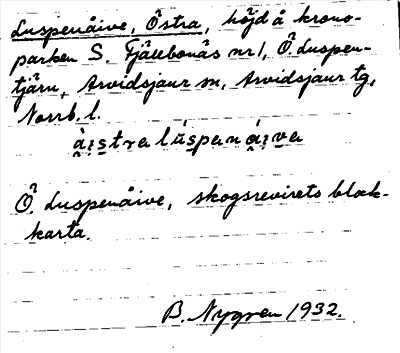 Luspenåive, Östra, höjd å krono-
parken S. Fjällbonäs nr 1, Ö. Luspen-
tjärn, Arvidsjaur sn, Arvidsjaur tg,
Norrb. l.
à̤i̤stra lúspanáiva
Ö. Luspenåive, skogsrevirets blad-
karta.
B. Nygren 1932.